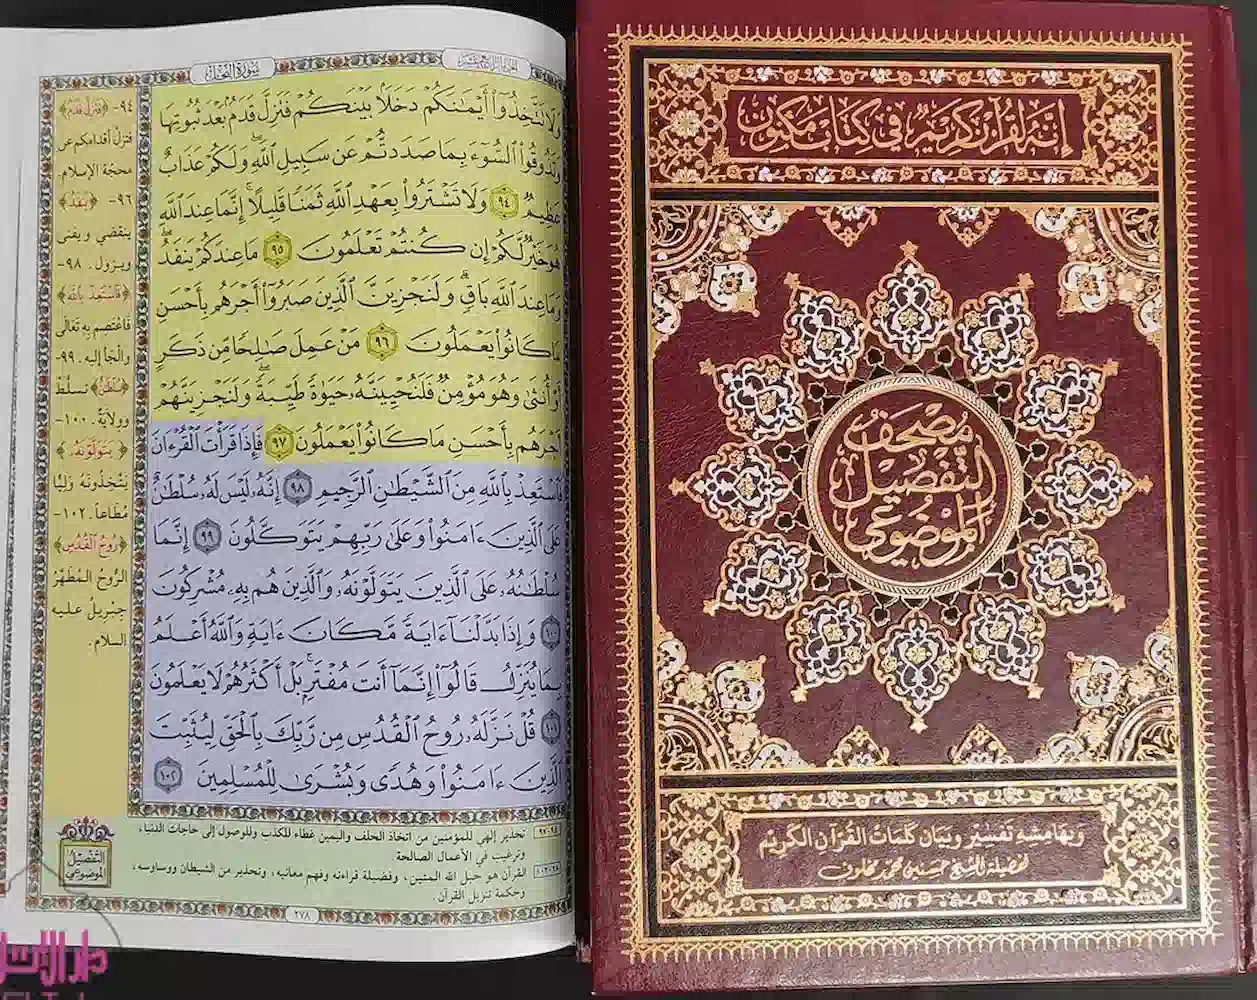 إنه لقرآن كريم في كتاب مكنون
مصحف
التفصيل
الموضوعي
وبهامشه تفسير وبيان كلمات القرآن الكريم
لفضيلة الشيخ حسنين محمد مخلوف
سورة النحل
وَلَا تَتَّخِذُوٓا۟ أَيْمَٰنَكُمْ دَخَلًۢا بَيْنَكُمْ فَتَزِلَّ قَدَمٌۢ بَعْدَ ثُبُوتِهَا
وَتَذُوقُوا۟ ٱلسُّوٓءَ بِمَا صَدَدتُّمْ عَن سَبِيلِ ٱللَّهِ ۖ وَلَكُمْ عَذَابٌ
عَظِيمٌ ٩٤ وَلَا تَشْتَرُوا۟ بِعَهْدِ ٱللَّهِ ثَمَنًا قَلِيلًا ۚ إِنَّمَا عِندَ ٱللَّهِ
هُوَ خَيْرٌ لَّكُمْ إِن كُنتُمْ تَعْلَمُونَ ٩٥ مَا عِندَكُمْ يَنفَدُ ۖ
وَمَا عِندَ ٱللَّهِ بَاقٍ ۗ وَلَنَجْزِيَنَّ ٱلَّذِينَ صَبَرُوٓا۟ أَجْرَهُم بِأَحْسَنِ
مَا كَانُوا۟ يَعْمَلُونَ ٩٦ مَنْ عَمِلَ صَٰلِحًا مِّن ذَكَرٍ
أَوْ أُنثَىٰ وَهُوَ مُؤْمِنٌ فَلَنُحْيِيَنَّهُۥ حَيَوٰةً طَيِّبَةً ۖ وَلَنَجْزِيَنَّهُمْ
أَجْرَهُم بِأَحْسَنِ مَا كَانُوا۟ يَعْمَلُونَ ٩٧ فَإِذَا قَرَأْتَ ٱلْقُرْءَانَ
فَٱسْتَعِذْ بِٱللَّهِ مِنَ ٱلشَّيْطَٰنِ ٱلرَّجِيمِ ٩٨ إِنَّهُۥ لَيْسَ لَهُۥ سُلْطَٰنٌ
عَلَى ٱلَّذِينَ ءَامَنُوا۟ وَعَلَىٰ رَبِّهِمْ يَتَوَكَّلُونَ ٩٩ إِنَّمَا
سُلْطَٰنُهُۥ عَلَى ٱلَّذِينَ يَتَوَلَّوْنَهُۥ وَٱلَّذِينَ هُم بِهِۦ مُشْرِكُونَ
١٠٠ وَإِذَا بَدَّلْنَآ ءَايَةً مَّكَانَ ءَايَةٍ ۙ وَٱللَّهُ أَعْلَمُ
بِمَا يُنَزِّلُ قَالُوٓا۟ إِنَّمَآ أَنتَ مُفْتَرٍۭ ۚ بَلْ أَكْثَرُهُمْ لَا يَعْلَمُونَ
١٠١ قُلْ نَزَّلَهُۥ رُوحُ ٱلْقُدُسِ مِن رَّبِّكَ بِٱلْحَقِّ لِيُثَبِّتَ
ٱلَّذِينَ ءَامَنُوا۟ وَهُدًى وَبُشْرَىٰ لِلْمُسْلِمِينَ ١٠٢
٩٤- ﴿فَتَزِلَّ قَدَمٌ﴾
فتزلّ أقدامكم عن
محجّة الإسلام.
٩٦- ﴿يَنفَدُ﴾
ينقضي ويفنى
ويزول. ٩٨-
﴿فَاسْتَعِذْ بِاللَّهِ﴾
فاعتصم به تعالى
والجأ إليه. ٩٩-
﴿سُلْطَانٌ﴾ تسلّط
وولاية. ١٠٠-
﴿يَتَوَلَّوْنَهُ﴾
يتّخذونه وليًّا
مُطاعاً. ١٠٢-
﴿رُوحُ الْقُدُسِ﴾
الرّوح المطهّر
جبريل عليه
السلام.
التفصيل
الموضوعي
٩٤-٩٧ تحذير إلهي للمؤمنين من اتخاذ الحلف واليمين غطاء للكذب وللوصول إلى حاجات الدنيا،
وترغيب في الأعمال الصالحة
٩٨-١٠٢ القرآن هو حبل الله المتين، وفضيلة قراءته وفهم معانيه، وتحذير من الشيطان ووساوسه،
وحكمة تنزيل القرآن.
٢٧٨